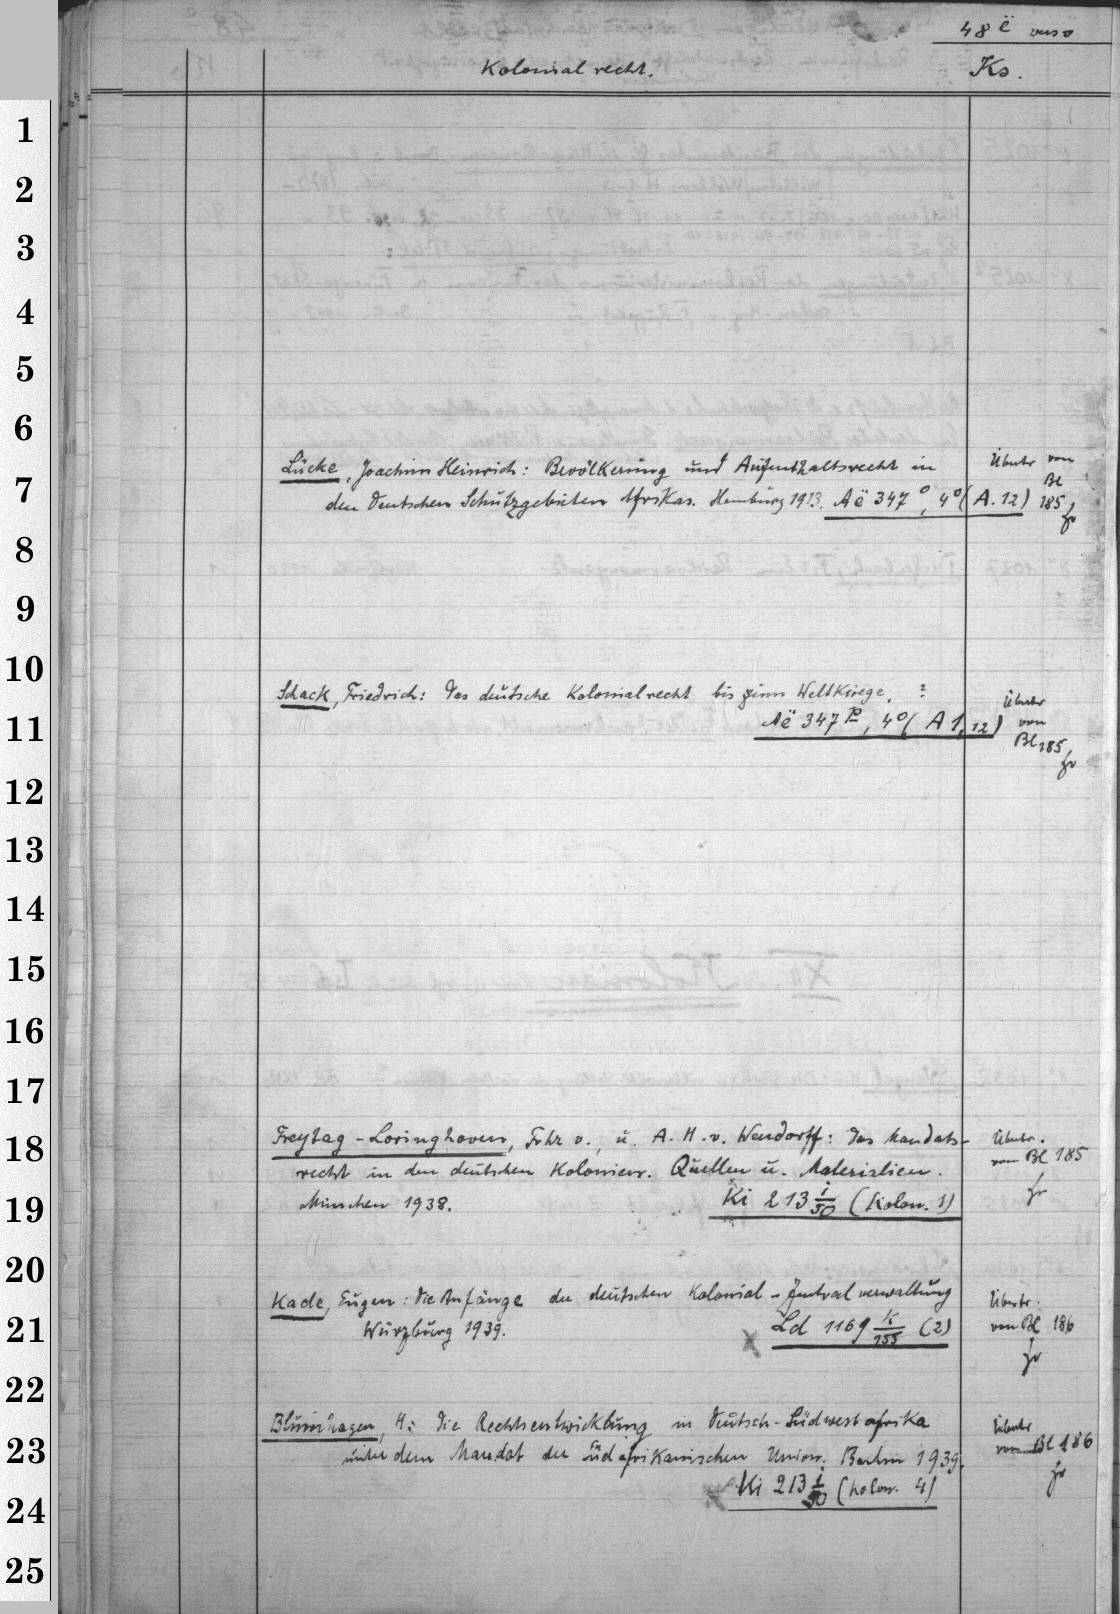 48 ë verso
Kolonialrecht. Ks.
1
2
3
4
5
6
7
8
9
10
11
12
13
14
15
16
17
18
19
20
21
22
23
24
25
Lücke, Joachim Heinrich: Bevölkerung und Aufenthaltsrecht in
den deutschen Schutzgebieten Afrikas. Hamburg 1913. Aë 347 o, 4o (A. 12)
Übertr von
Bl
185
Schack, Friedrich: Das deutsche Kolonialrecht bis zum Weltkriege. ?
Aë 347 p, 4o (A 1, 12)
Übertr
von
Bl 185
Freytag-Loringhoven, Frhr v., u. A. H. v. Wendorff: Das Mandats-
recht in den deutschen Kolonien. Quellen u. Materialien.
München 1938. Ki 213 i/50 (Kolon. 1)
Übertr.
von Bl 185
Kade, Eugen: Die Anfänge der deutschen Kolonial-Zentralverwaltung
Würzburg 1939. x Ld 1169 k/155 (2)
Übertr.
von Bl 186
Blumhagen, H.: Die Rechtsentwicklung in Deutsch-Südwestafrika
unter dem Mandat der Südafrikanischen Union. Berlin 1939.
x Ki 213 i/50 (Kolon. 4)
Übertr
von Bl 186